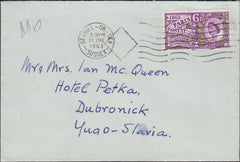 MO
2 30 PM
11 JNE
1963
SUSSEX
1863
PARIS
6D
Mr & Mrs. Ian McQueen
Hotel Petka,
Dubronick,
Yugo-Slavia.